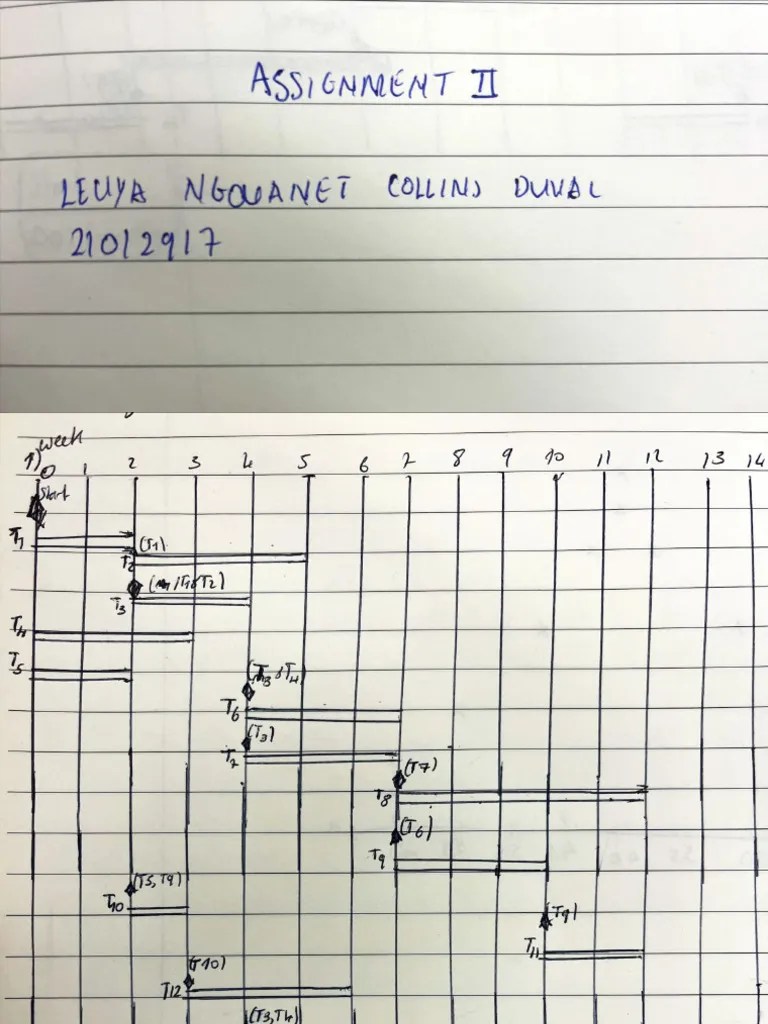 ASSIGNMENT II
LEUYA NGOUANET COLLINS DUVAL
21012917
1) week
0 1 2 3 4 5 6 7 8 9 10 11 12 13 14
Start
T1
(T1)
T2
T3
T4
T5
T6
(T3)
T7
(T7)
T8
(T6)
T9
(T5, T9)
T10
(T9)
T11
(T10)
T12
(T3, T4)